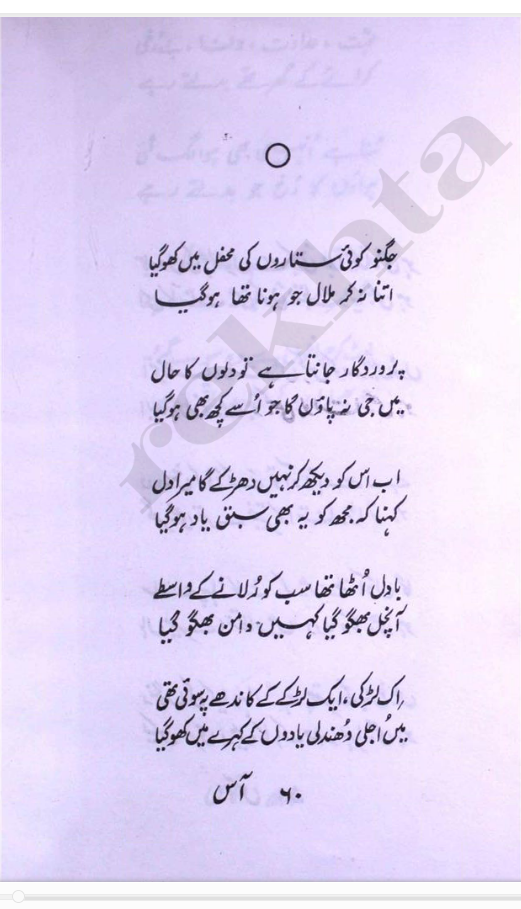 جگنو کوئی ستاروں کی محفل میں کھو گیا
اتنا نہ کر ملال جو ہونا تھا ہو گیا
پروردگار جانتا ہے تو دلوں کا حال
میں جی نہ پاؤں گا جو اُسے کچھ بھی ہو گیا
اب اس کو دیکھ کر نہیں دھڑکے گا میرا دل
کہنا کہ مجھ کو یہ بھی سبق یاد ہو گیا
بادل اُٹھا تھا سب کو رُلانے کے واسطے
آنچل بھگو گیا کہیں دامن بھگو گیا
اک لڑکی، ایک لڑکے کے کاندھے پہ سوئی تھی
میں اُجلی دُھندلی یادوں کے کہرے میں کھو گیا
۶۰ آس
rekhta